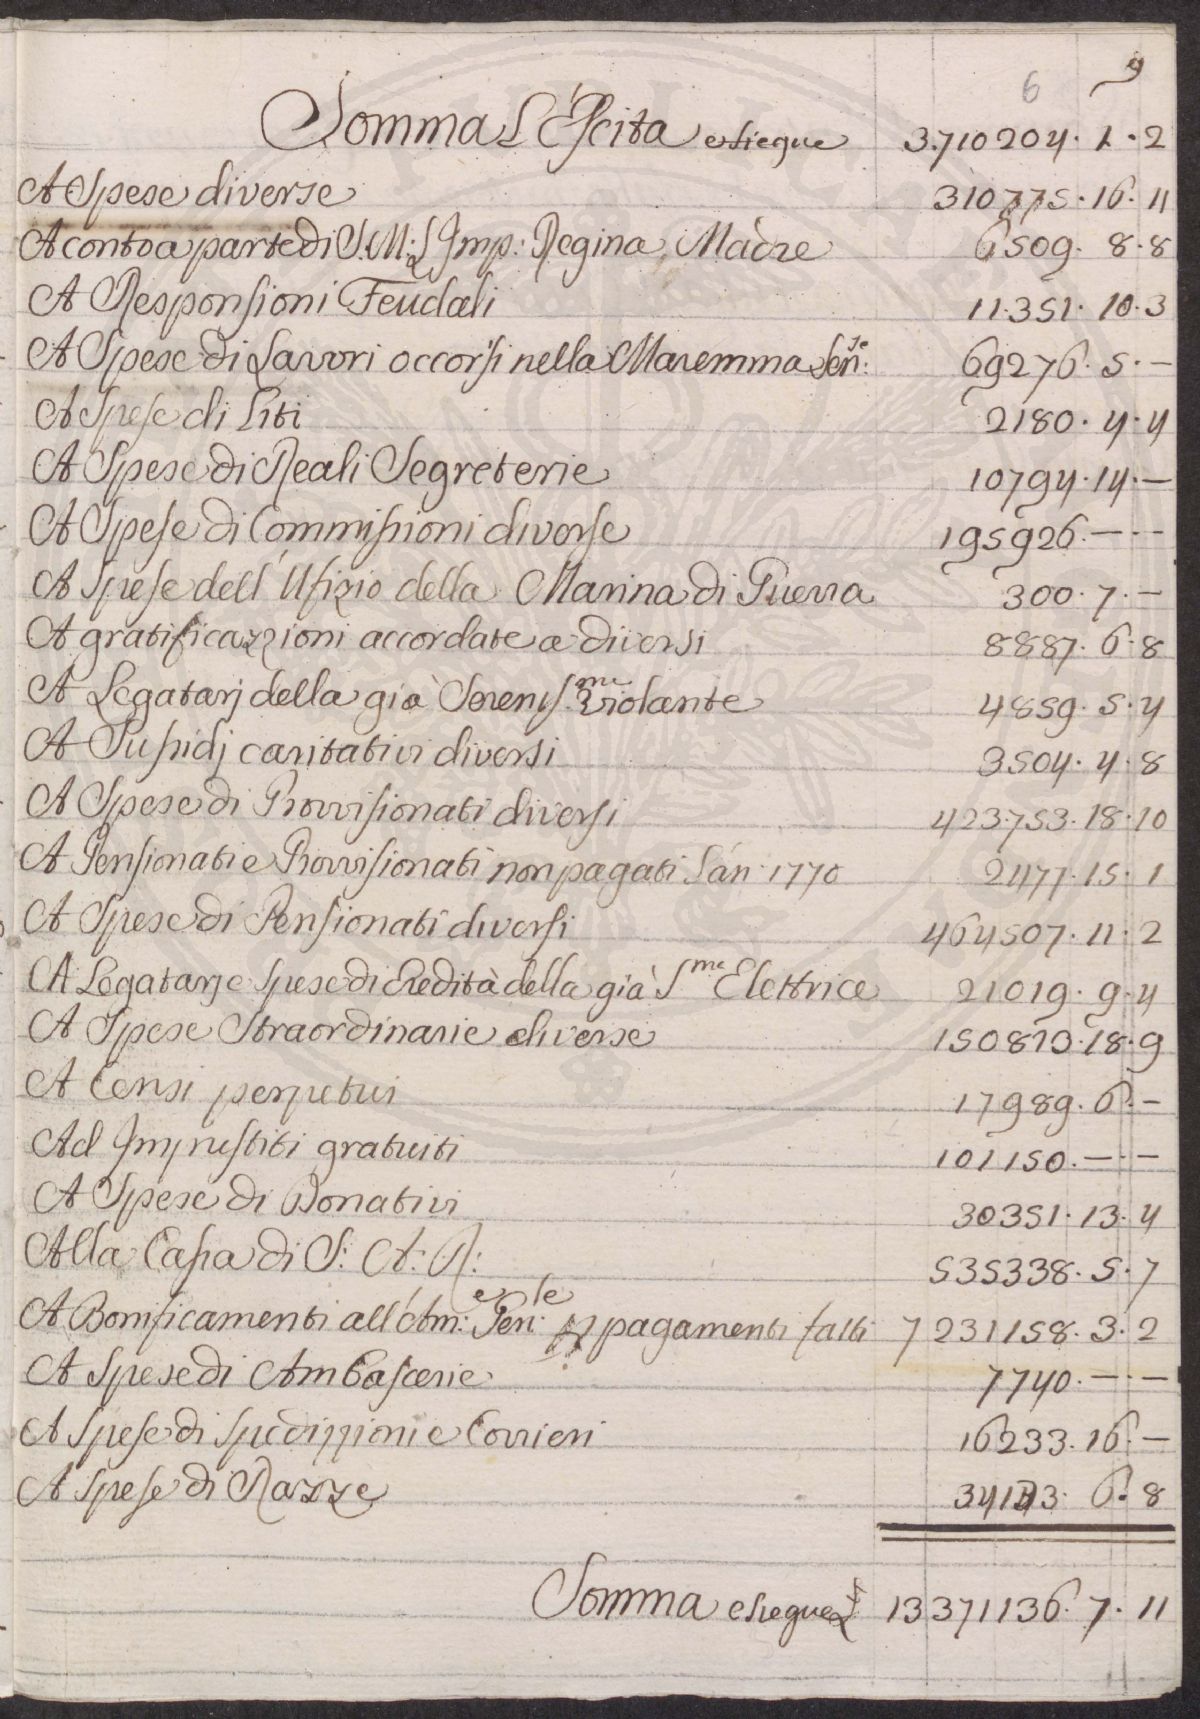 6
9
Somma L'Escita e siegue 3.710204. 1. 2
A Spese diverse 310775. 16. 11
A conto a parte di S.M: L'Imp: Regina Madre 6509. 8. 8
A Responsioni Feudali 11.351. 10. 3
A Spese di Lavori occorsi nella Maremma Sen:se 69276. 5. —
A Spese di Liti 2180. 4. 4
A Spese di Reali Segreterie 10794. 14. —
A Spese di Commissioni diverse 195926. — . —
A Spese dell'Ufizio della Marina di Guerra 300. 7. —
A gratificazzioni accordate a diversi 8887. 6. 8
A Legatarj della già Sereniss.me Violante 4859. 5. 4
A Sussidj caritativi diversi 3504. 4. 8
A Spese di Provvisionati diversi 423.753. 18. 10
A Pensionati e Provvisionati non pagati L'an: 1770 2477. 15. 1
A Spese di Pensionati diversi 464507. 11. 2
A Legatarj e Spese di Eredità della già S.me Elettrice 21019. 9. 4
A Spese Straordinarie diverse 150873. 18. 9
A Censi perpetui 17989. 6. —
Ad Imprestiti gratuiti 101150. — . —
A Spese di Donativi 30351. 13. 4
Alla Cassa di S: A: R: 535338. 5. 7
A Bonificamenti all'Am:e Gen:le pagamenti fatti 7231158. 3. 2
A Spese di Ambascerie 7740. — . —
A Spese di Spedizzioni e Corrieri 16233. 16. —
A Spese di Razze 6. 8
Somma e siegue £ 13371136. 7. 11